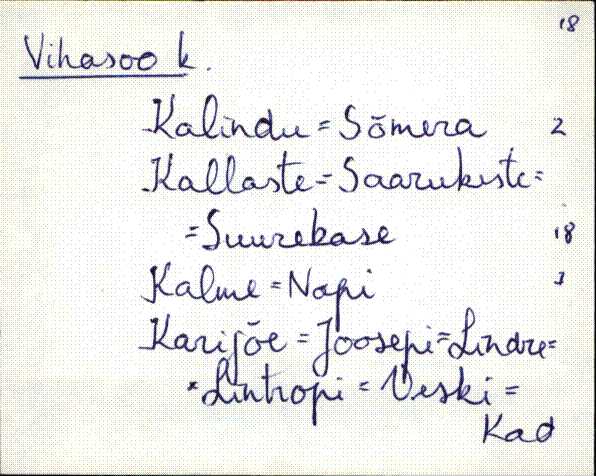 18
Vihasoo k.
Kalindu = Sõmera 2
Kallaste = Saarukiste =
= Suurekase 18
Kalme = Napi 3
Karijõe = Joosepi = Lindre =
= Lintropi = Veski =
Kad